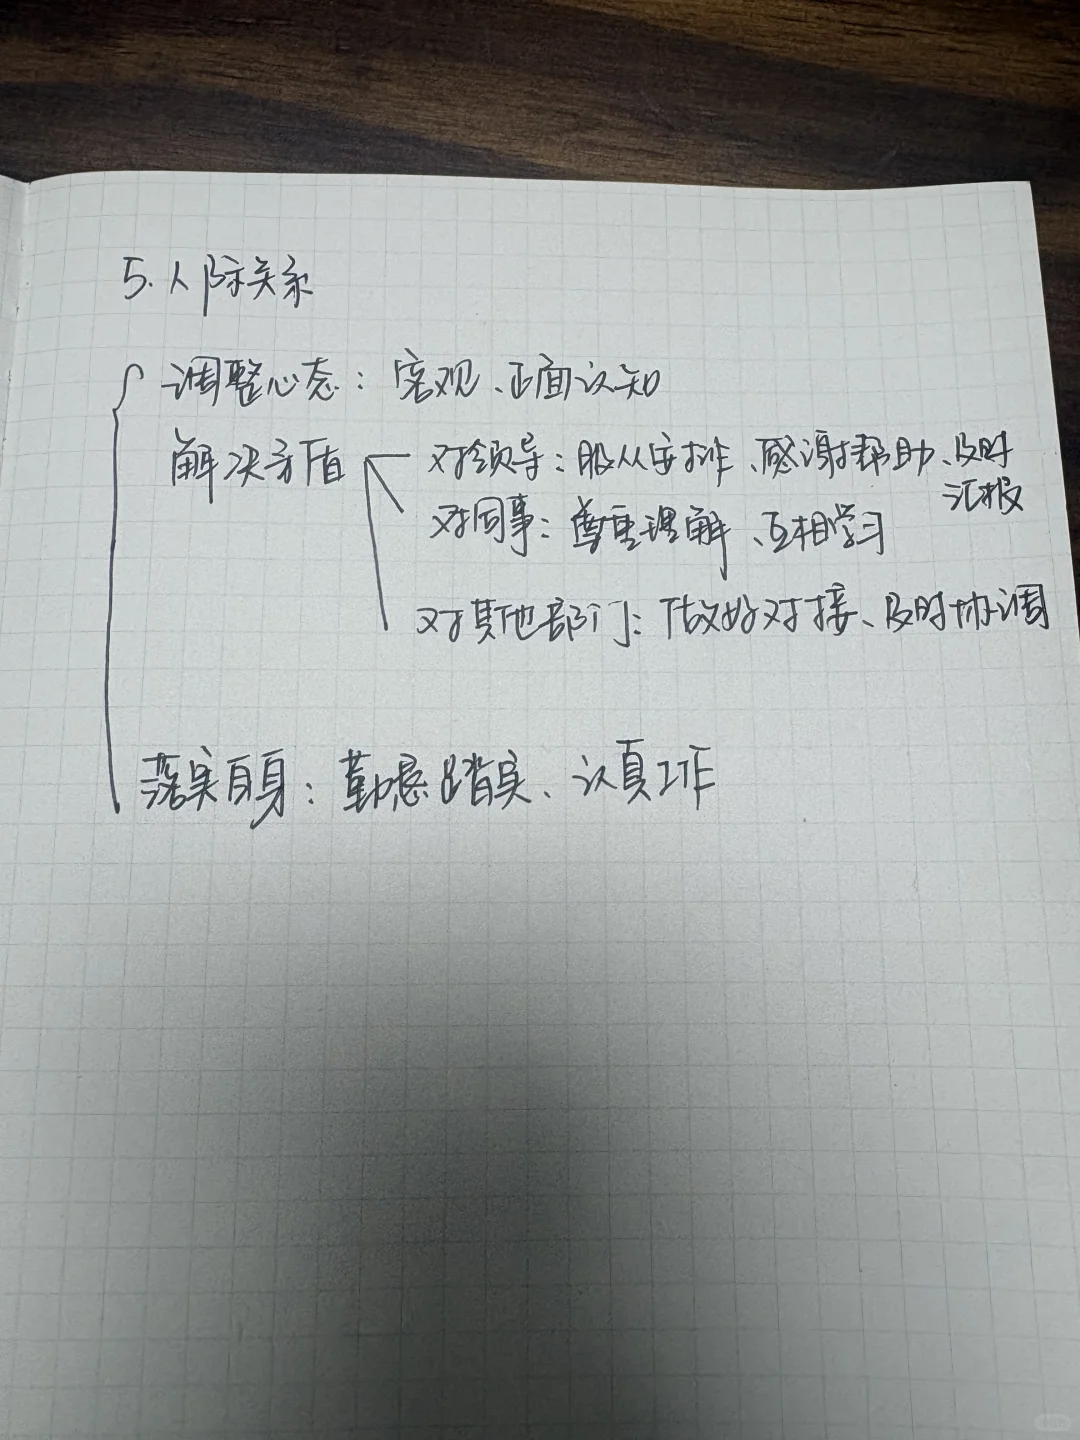 5.人际关系
调整心态：客观、正面认知
解决矛盾
对领导：服从安排、感谢帮助、及时
汇报
对同事：尊重理解、互相学习
对其他部门：做好对接、及时协调
落实自身：勤恳踏实、认真工作